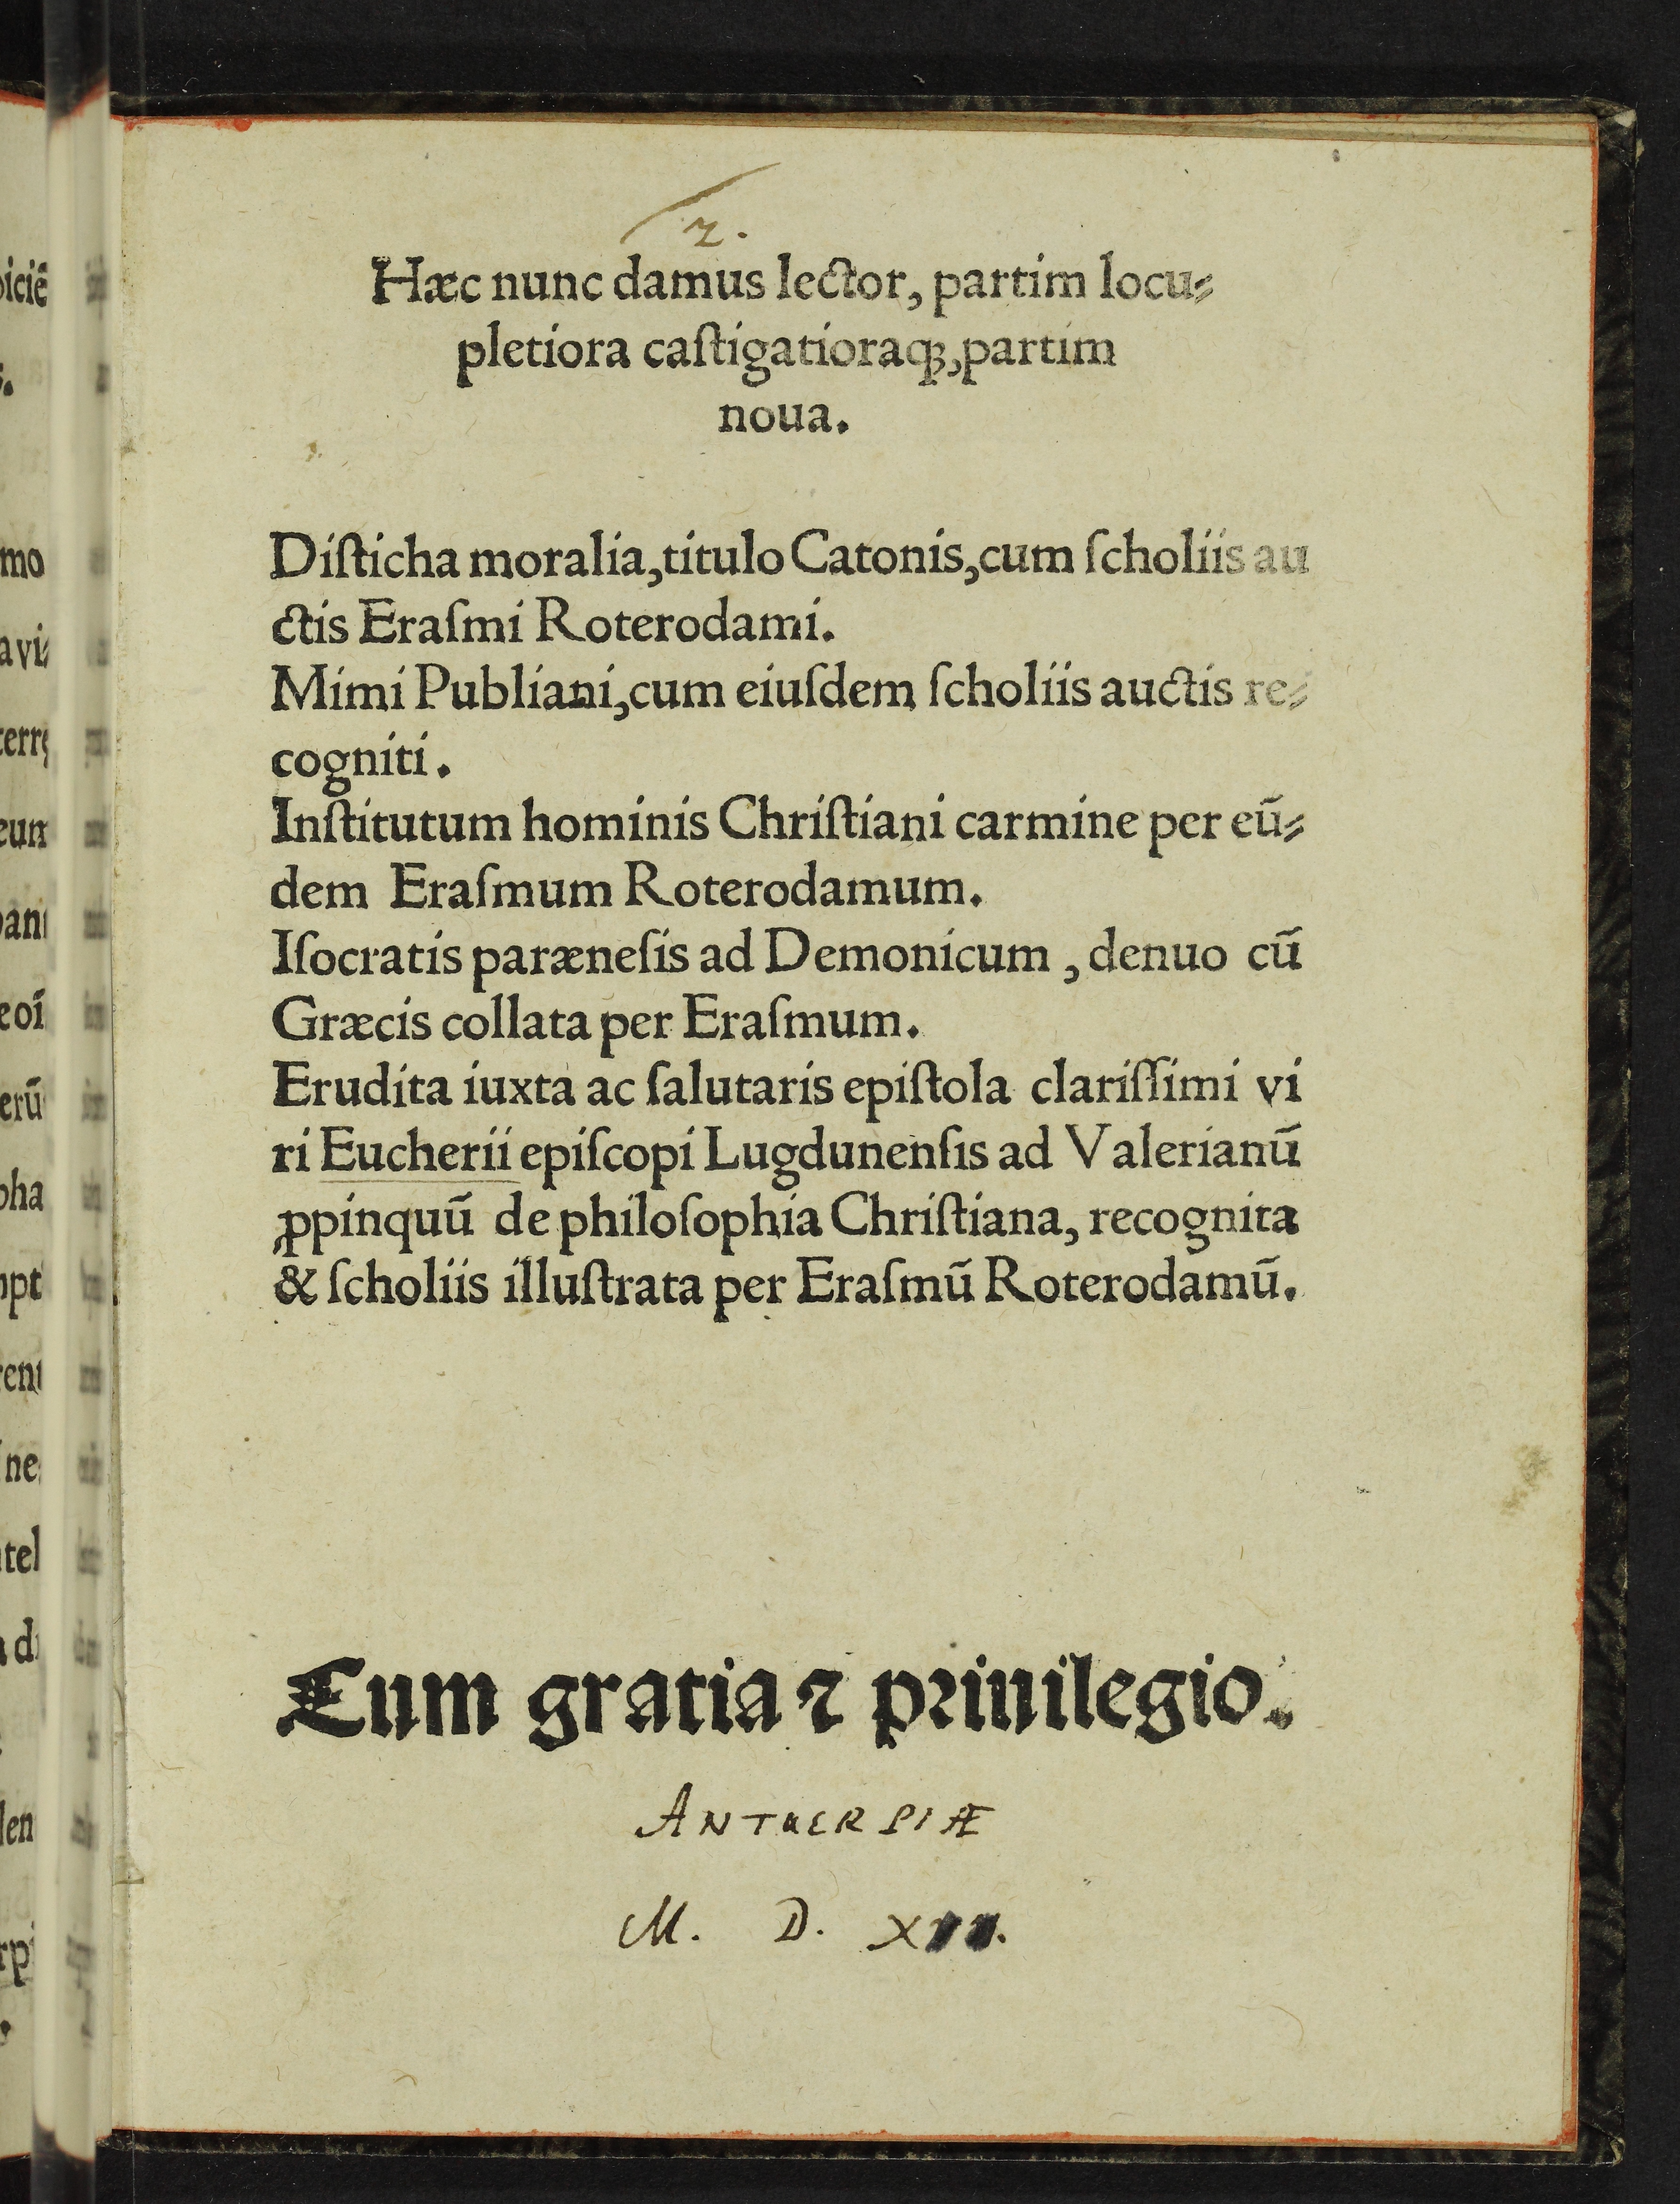 2.
Hæc nunc damus lector, partim locu⸗
pletiora caſtigatioraqꝫ, partim
noua.
Diſticha moralia, titulo Catonis, cum ſcholiis au
ctis Eraſmi Roterodami.
Mimi Publiani, cum eiuſdem ſcholiis auctis re⸗
cogniti.
Inſtitutum hominis Chriſtiani carmine per eū⸗
dem Eraſmum Roterodamum.
Iſocratis parænesis ad Demonicum, denuo cū
Græcis collata per Eraſmum.
Erudita iuxta ac ſalutaris epiſtola clariſſimi vi
ri Eucherii epiſcopi Lugdunenſis ad Valerianū
ꝓpinquū de philoſophia Chriſtiana, recognita
& ſcholiis illuſtrata per Eraſmū Roterodamū.
Cum gratia ⁊ priuilegio.
ANTUERPIÆ
M. D.